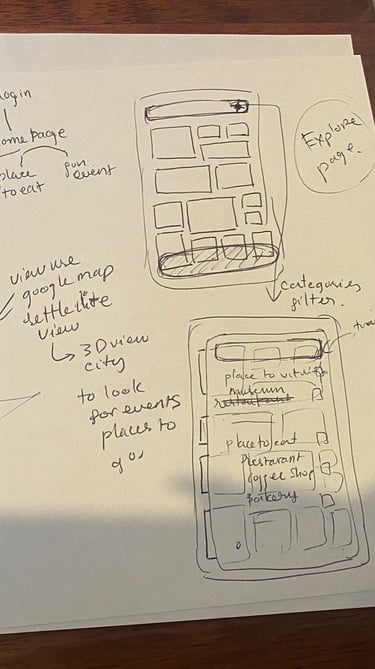 login
home page
place
to eat
fun
event
Explore
page.
view use
google map
settelite
view
3D view
city
to look
for events
places to
go
categories
filter.
place to visit
museum
restaurant
place to eat
Restarant
coffee shop
bakery